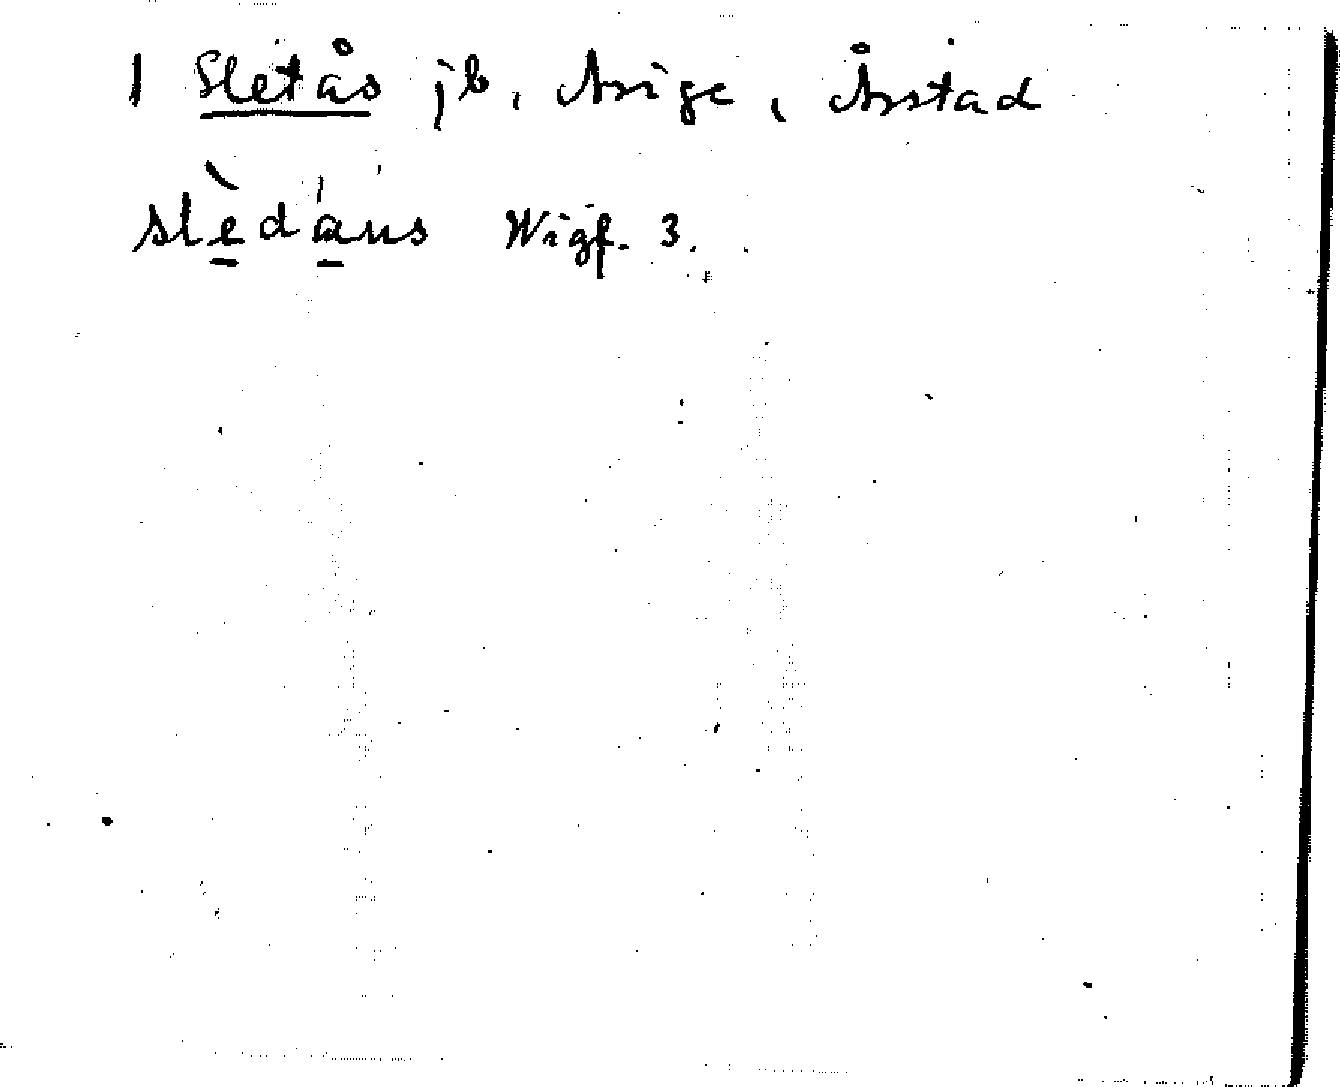 1 Sletås jb, Asige, Årstad
slèdáus Wigf. 3.